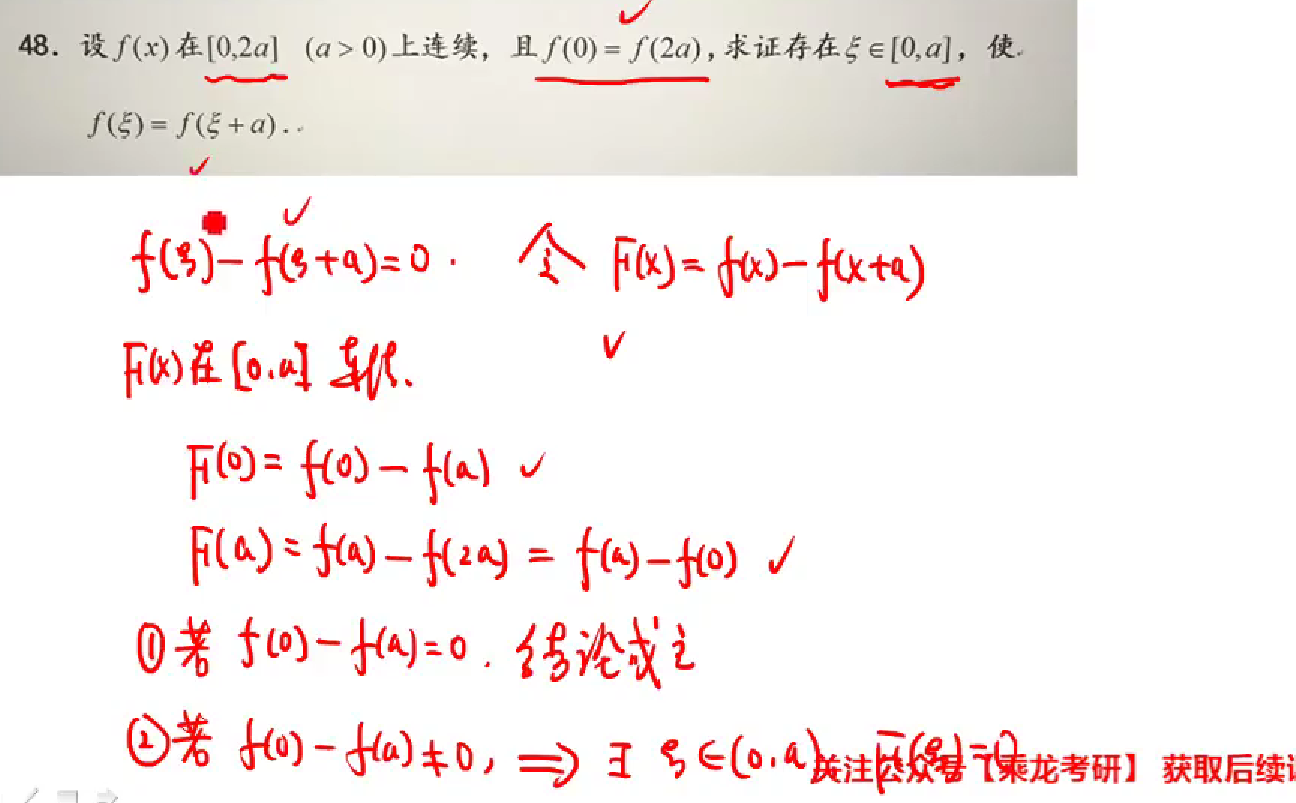 48. 设 f(x) 在 [0,2a] (a > 0) 上连续，且 f(0) = f(2a)，求证存在 ξ ∈ [0,a]，使
f(ξ) = f(ξ + a).
f(ξ) - f(ξ+a) = 0. 令 F(x) = f(x) - f(x+a)
F(x) 在 [0.a] 连续.
F(0) = f(0) - f(a)
F(a) = f(a) - f(2a) = f(a) - f(0)
① 若 f(0) - f(a) = 0. 结论成立
② 若 f(0) - f(a) ≠ 0, ⇒ ∃ ξ ∈ (0.a), F(ξ) = 0
关注公众号【乘龙考研】 获取后续